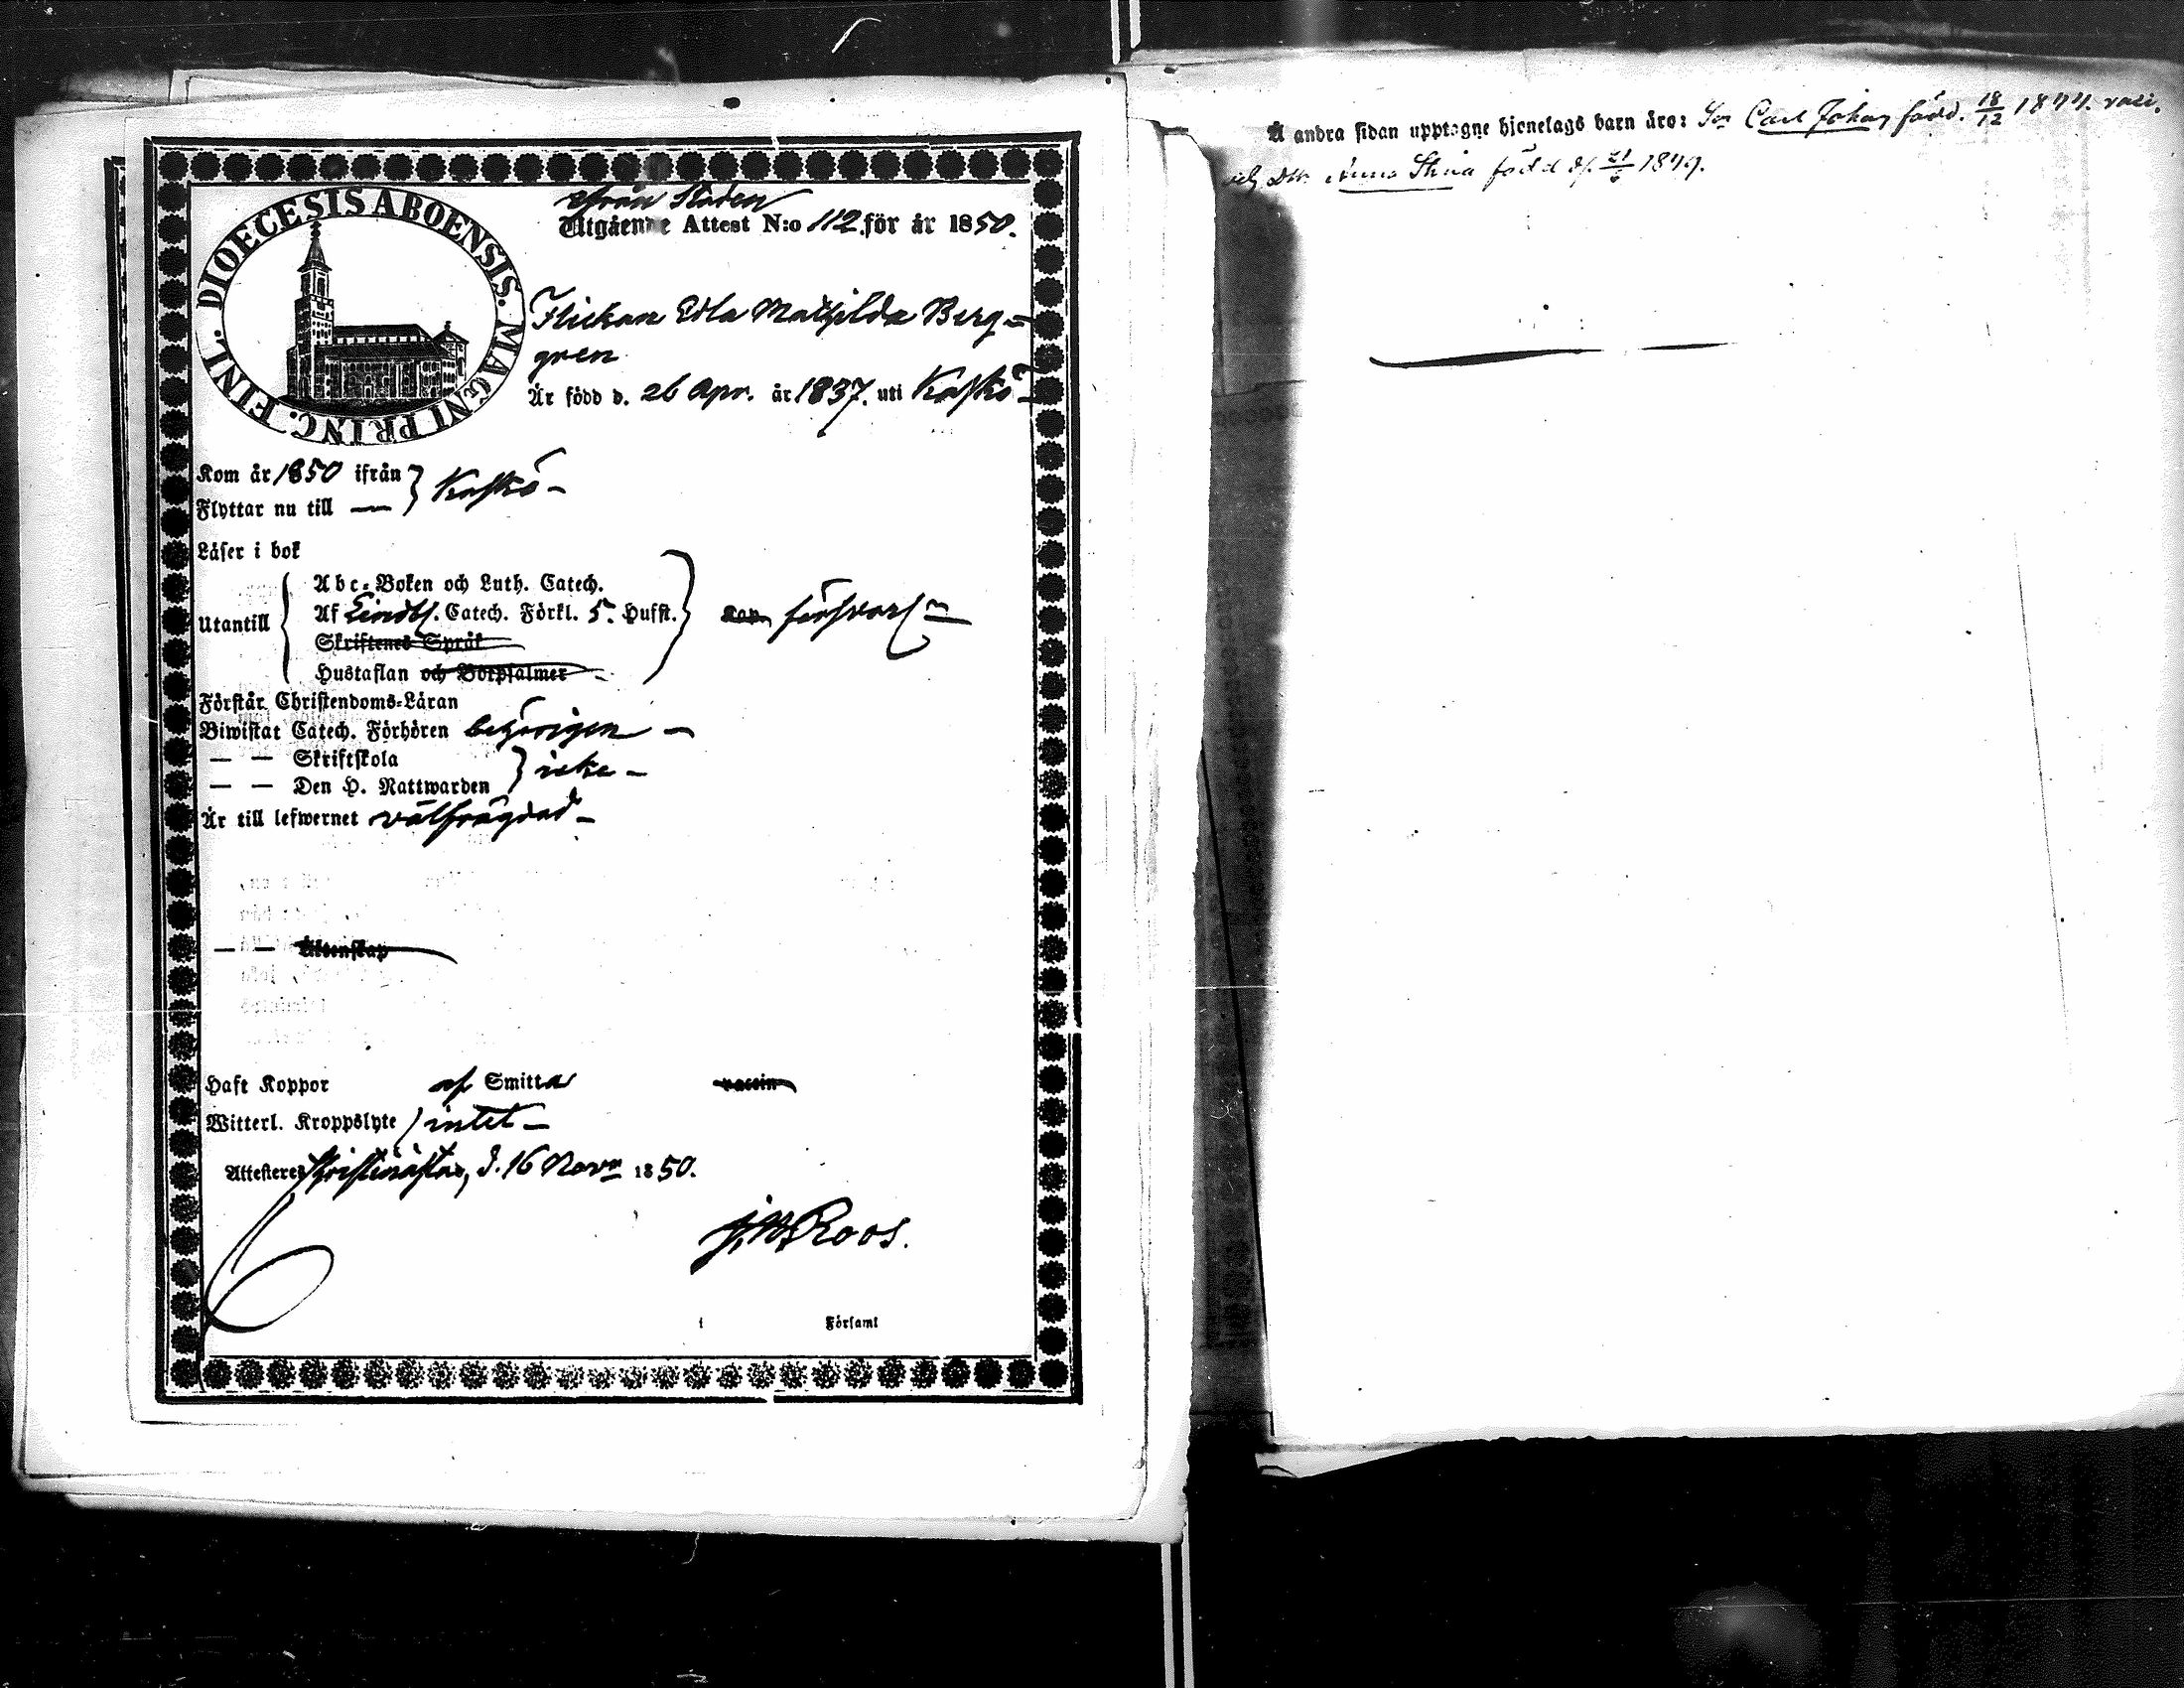 DIOECESIS ABOENSIS. MAGNI PRINC. FINL.
ifrån Staden
Utgående Attest N:o 112 för år 1850.
Flickan Edla Mathilda Berg-
gren
Är född d. 26 Apr. år 1837. uti Kaskö
Kom år 1850 ifrån } Kaskö
Flyttar nu till —
Läser i bok
Utantill
Abc-Boken och Luth. Catech.
Af Lindbl. Catech. Förkl. 5. Hufst. försvarl
Skriftenes Språk
Hustaflan och Botpsalmer
Förstår Christendoms-Läran
Biwistat Catech. Förhören behörigen —
— — Skriftskola
— — Den H. Nattwarden } icke —
Är till lefwernet välfrägdad —
— — Äktenskap
Haft Koppor af Smitta vaccin
Witterl. Kroppslyte intet —
Attesteres Kristinestad, d. 16 Novr 1850.
Roos.
i Församl
Å andra sidan upptagne hjonelags barn äro: Son Carl Johan född. 18/12 1844. vacc.
Dtr Anna Stina född d.